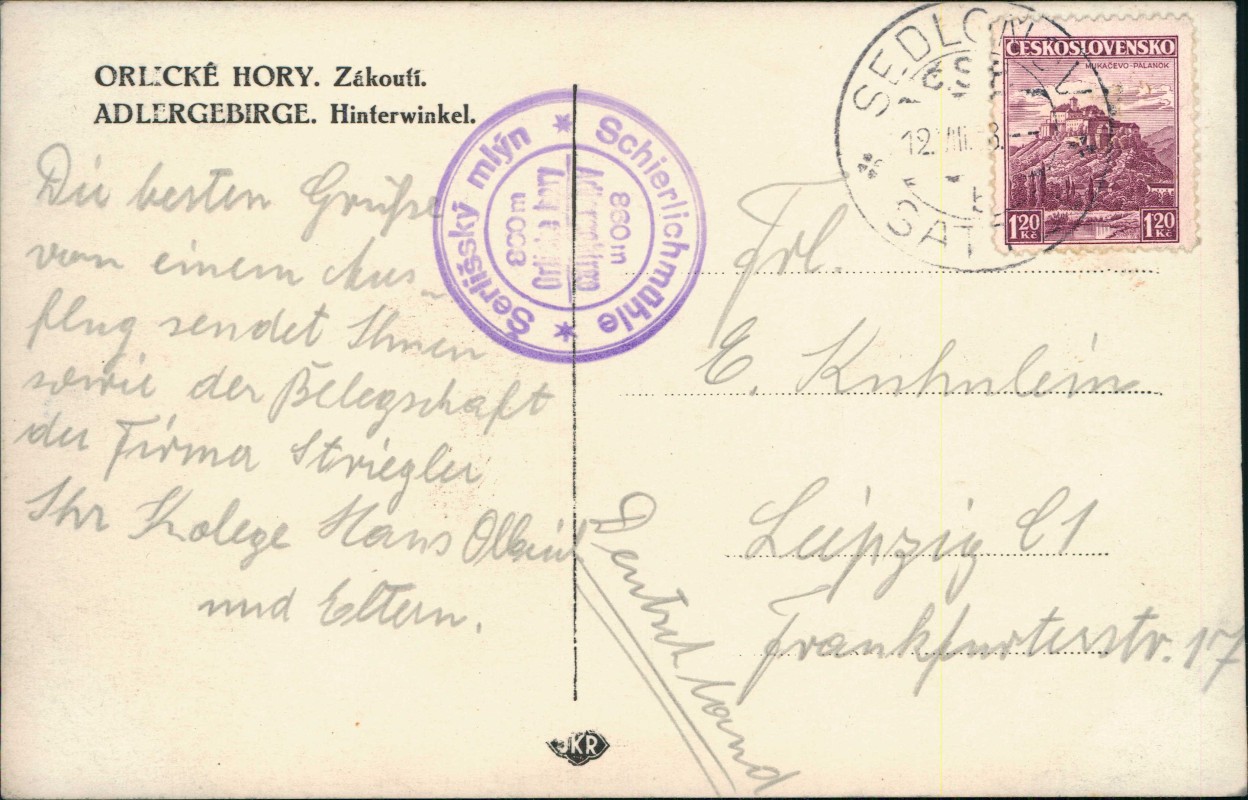 ORLICKÉ HORY. Zákoutí.
ADLERGEBIRGE. Hinterwinkel.
Die besten Grüße
von einem Aus-
flug sendet Ihnen
sowie der Belegschaft
der Firma Striegler
Ihr Kolege Hans
und Eltern.
Šerlišský mlýn
Schierlichmühle
860 m
SEDLOŇOV
ČSR
12.VIII.
SATT
ČESKOSLOVENSKO
MUKAČEVO-PALANOK
1.20 Kč
1.20 Kč
Frl.
E. Kuhnlein
Leipzig C1
Frankfurterstr. 17
Deutschland
JKR